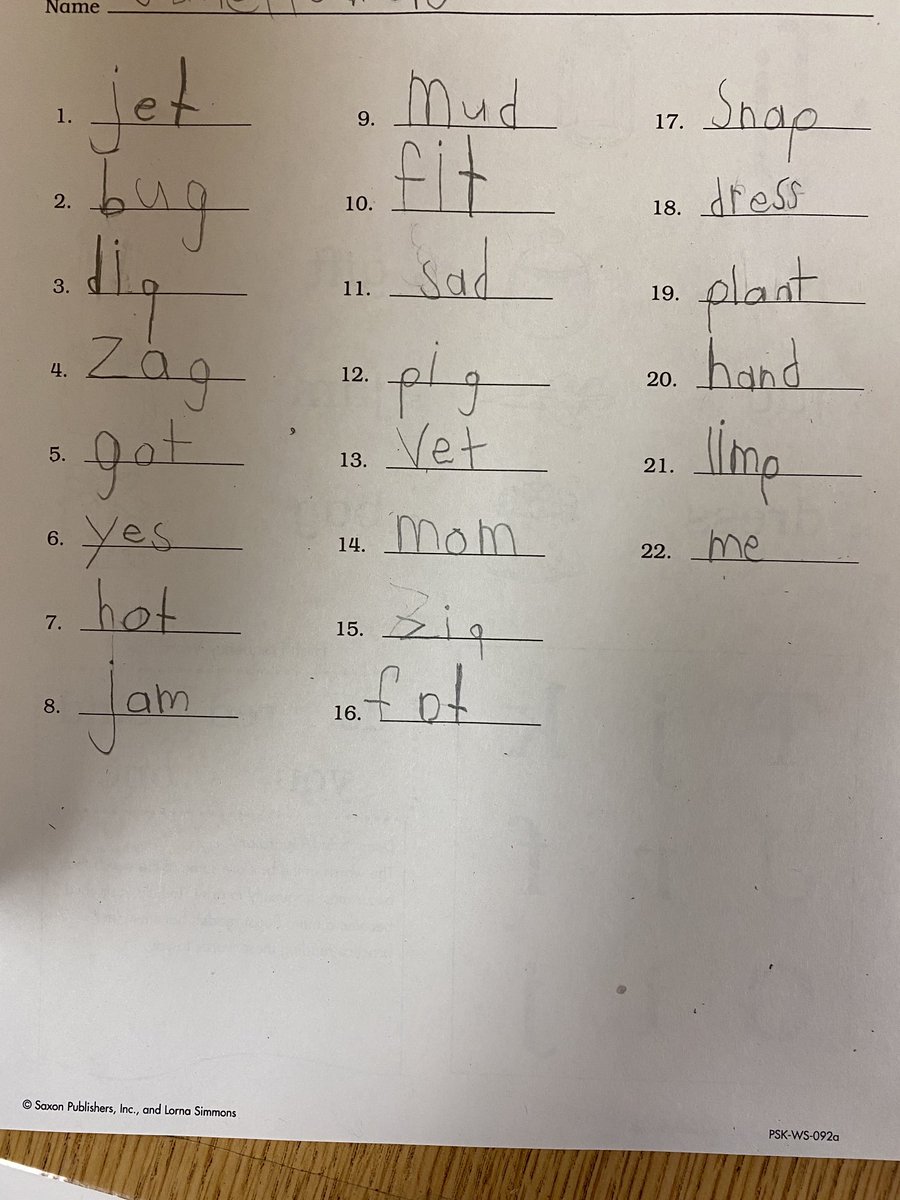 Name
1. jet
2. bug
3. dig
4. zag
5. got
6. yes
7. hot
8. jam
9. Mud
10. fit
11. sad
12. pig
13. Vet
14. mom
15. zig
16. fot
17. Snap
18. dress
19. plant
20. hand
21. limp
22. me
© Saxon Publishers, Inc., and Lorna Simmons
PSK-WS-092a